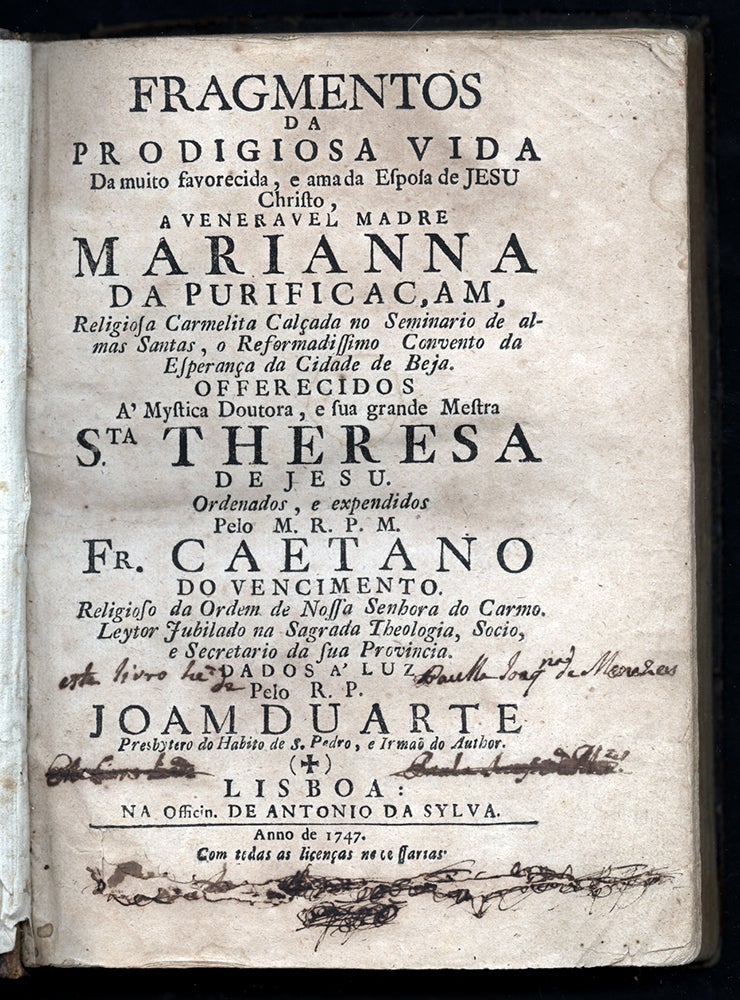 FRAGMENTOS
DA
PRODIGIOSA VIDA
Da muito favorecida, e amada Eſpoſa de JESU
Chriſto,
A VENERAVEL MADRE
MARIANNA
DA PURIFICAC,AM,
Religioſa Carmelita Calçada no Seminario de al-
mas Santas, o Reformadiſſimo Convento da
Eſperança da Cidade de Beja.
OFFERECIDOS
A' Myſtica Doutora, e ſua grande Meſtra
S.TA THERESA
DE JESU.
Ordenados, e expendidos
Pelo M. R. P. M.
FR. CAETANO
DO VENCIMENTO.
Religioſo da Ordem de Noſſa Senhora do Carmo.
Leytor Jubilado na Sagrada Theologia, Socio,
e Secretario da ſua Provincia.
este livro he DADOS A' LUZ
de Pelo R. P.
JOAM DUARTE
Presbytero do Habito de S. Pedro, e Irmaõ do Author.
(✠)
LISBOA:
NA Officin. DE ANTONIO DA SYLVA.
Anno de 1747.
Com todas as licenças neceſſarias